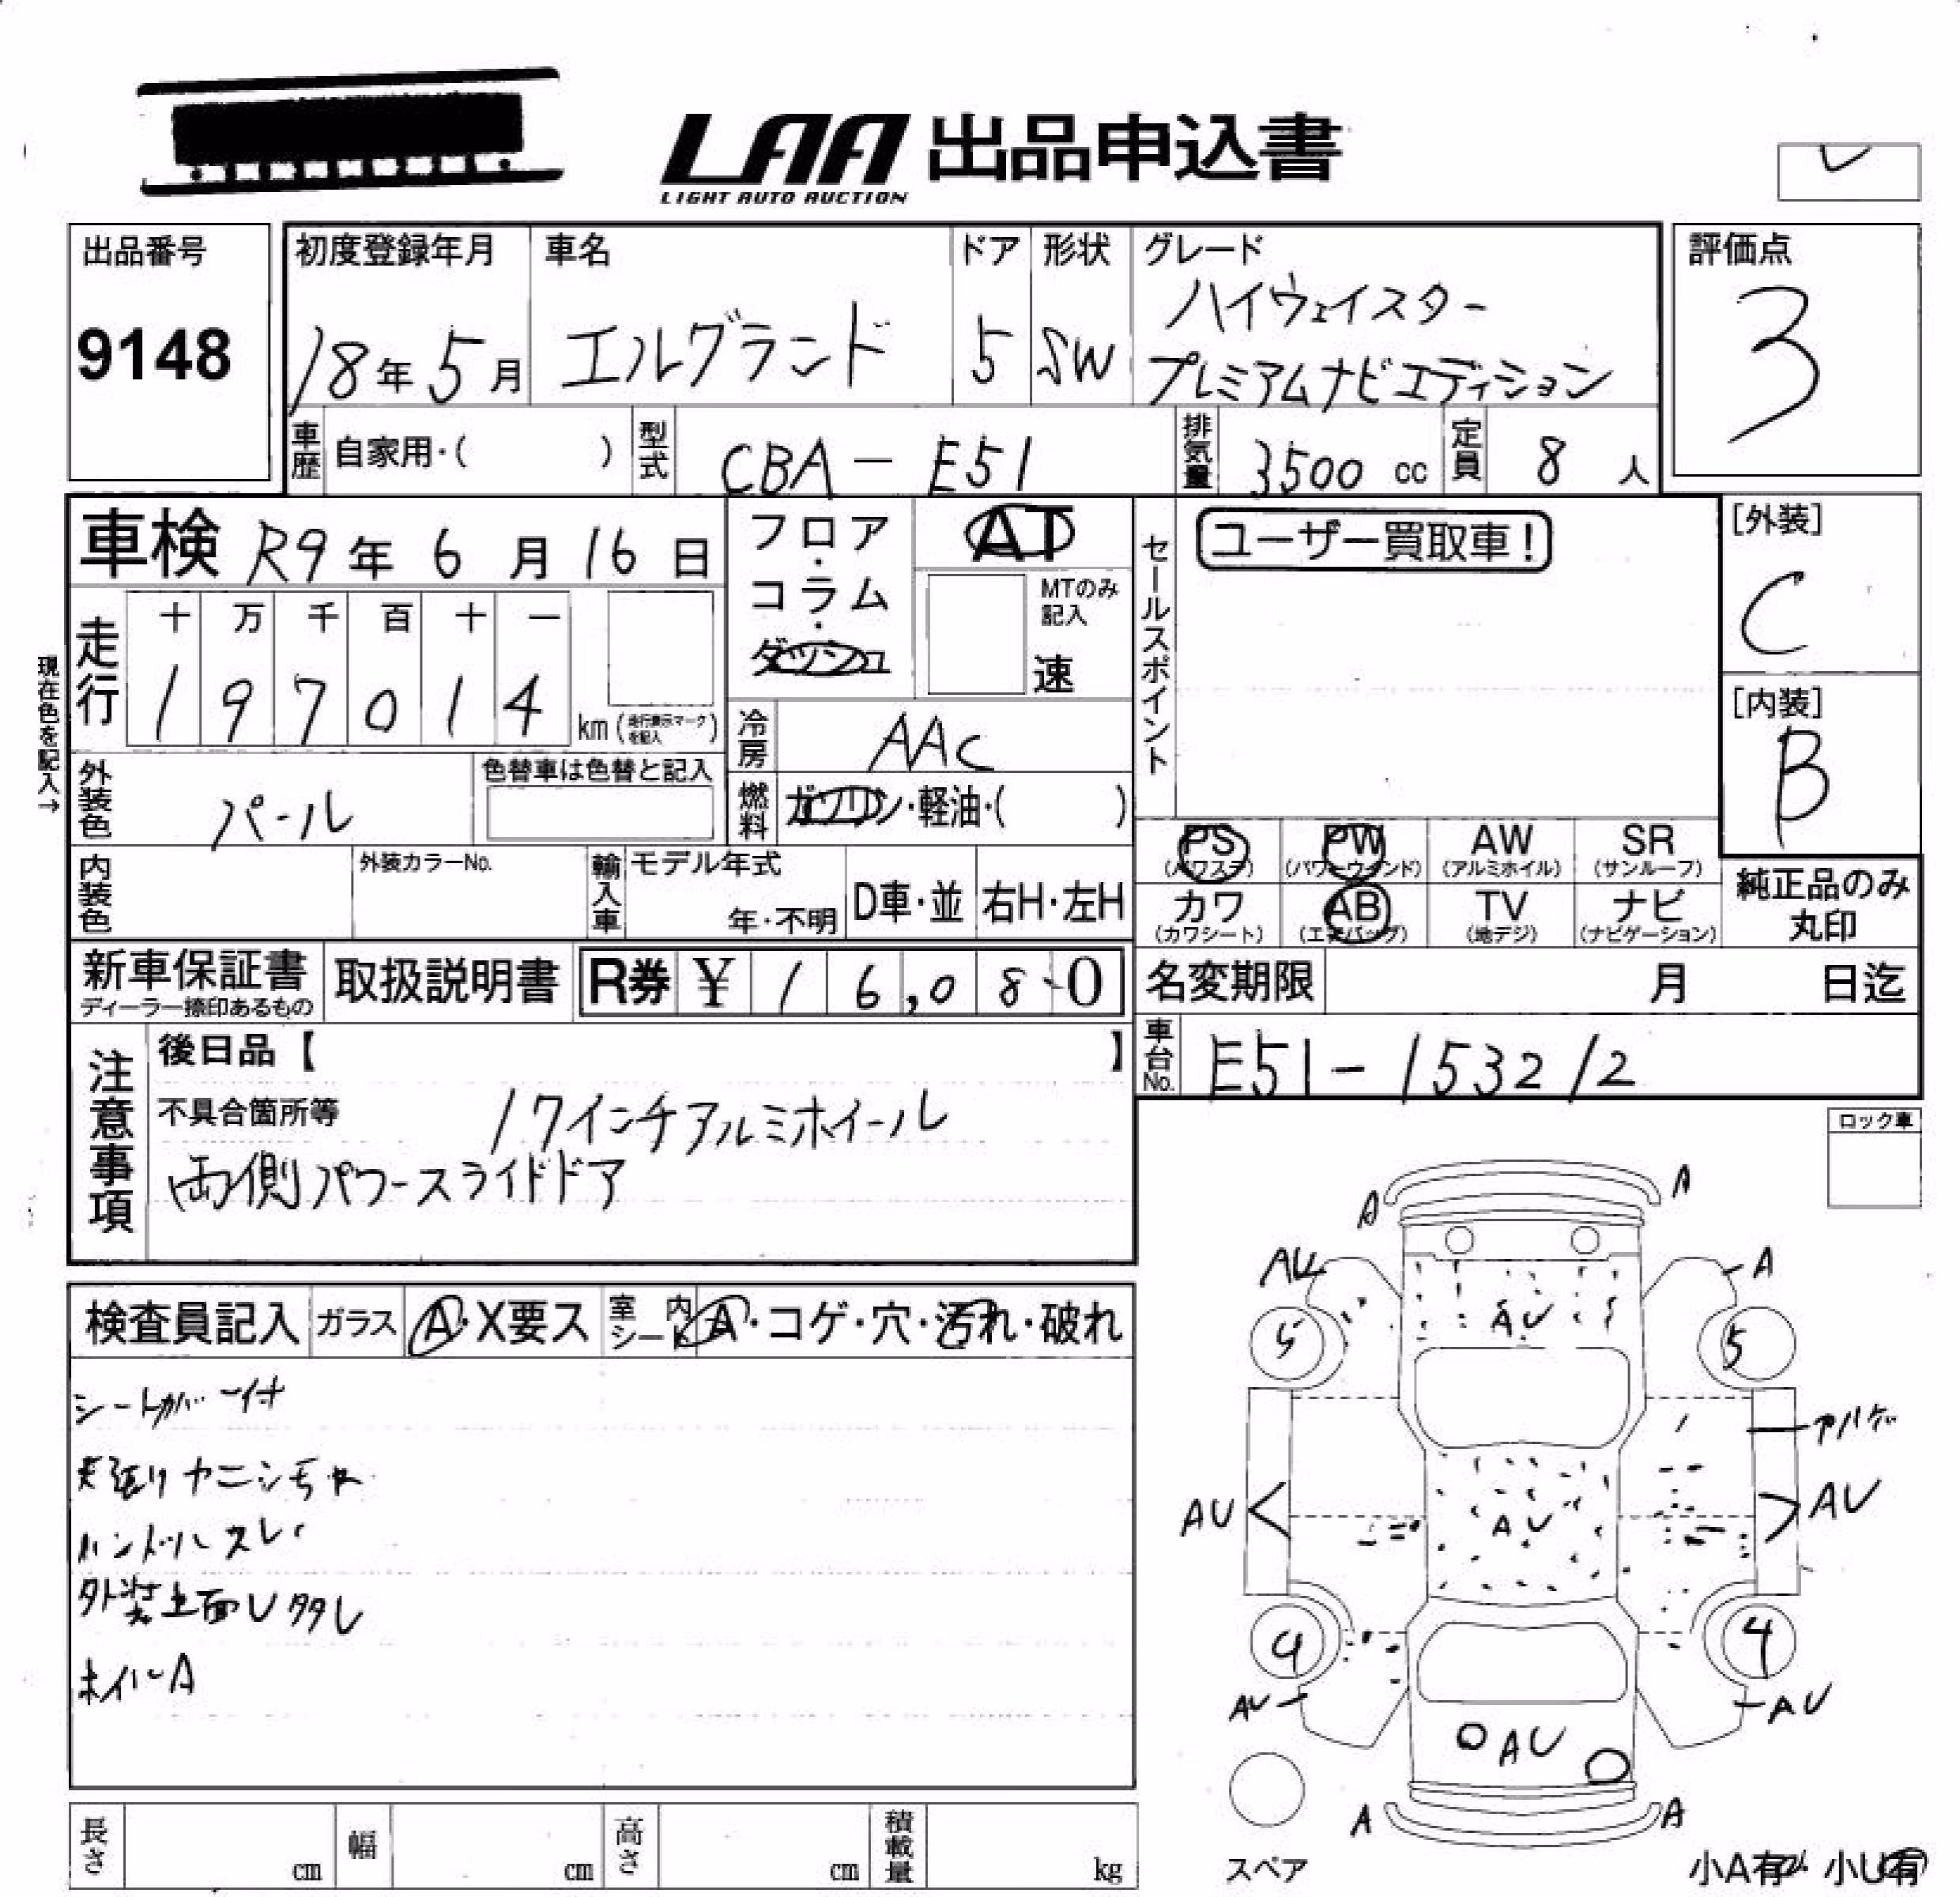 LAA 出品申込書
LIGHT AUTO AUCTION
出品番号
9148
初度登録年月
18年 5月
車名
エルグランド
ドア
5
形状
SW
グレード
ハイウェイスター
プレミアムナビエディション
評価点
3
車歴 自家用・( )
型式 CBA-E51
排気量 3500 cc
定員 8 人
車検 R9年 6月 16日
フロア・コラム・ダッシュ
AT
MTのみ記入
速
セールスポイント
ユーザー買取車!
[外装]
C
[内装]
B
現在色を記入→
走行
十 万 千 百 十 一
1 9 7 0 1 4 km (走行表示マークを記入)
冷房 AAC
外装色 パール
色替車は色替と記入
燃料 ガソリン・軽油・( )
内装色
外装カラーNo.
輸入車 モデル年式
年・不明
D車・並
右H・左H
PS (パワステ)
PW (パワーウインド)
AW (アルミホイル)
SR (サンルーフ)
カワ (カワシート)
AB (エアバッグ)
TV (地デジ)
ナビ (ナビゲーション)
純正品のみ
丸印
新車保証書
ディーラー捺印あるもの
取扱説明書
R券 ¥ 16,080
名変期限 月 日迄
車台No. E51-153212
注意事項
後日品【 】
不具合箇所等 17インチアルミホイール
両側パワースライドドア
ロック車
検査員記入 ガラス A・X要ス 室内シート A・コゲ・穴・汚れ・破れ
シートカバー付
天張りヤニシミ
ハンドルスレ
外装上面U多し
ホイルA
A A
AU A
AU
5 5
AU AU AU
4 4
AU AU
AU
A A
スペア
小A有 小U有
長さ cm
幅 cm
高さ cm
積載量 kg